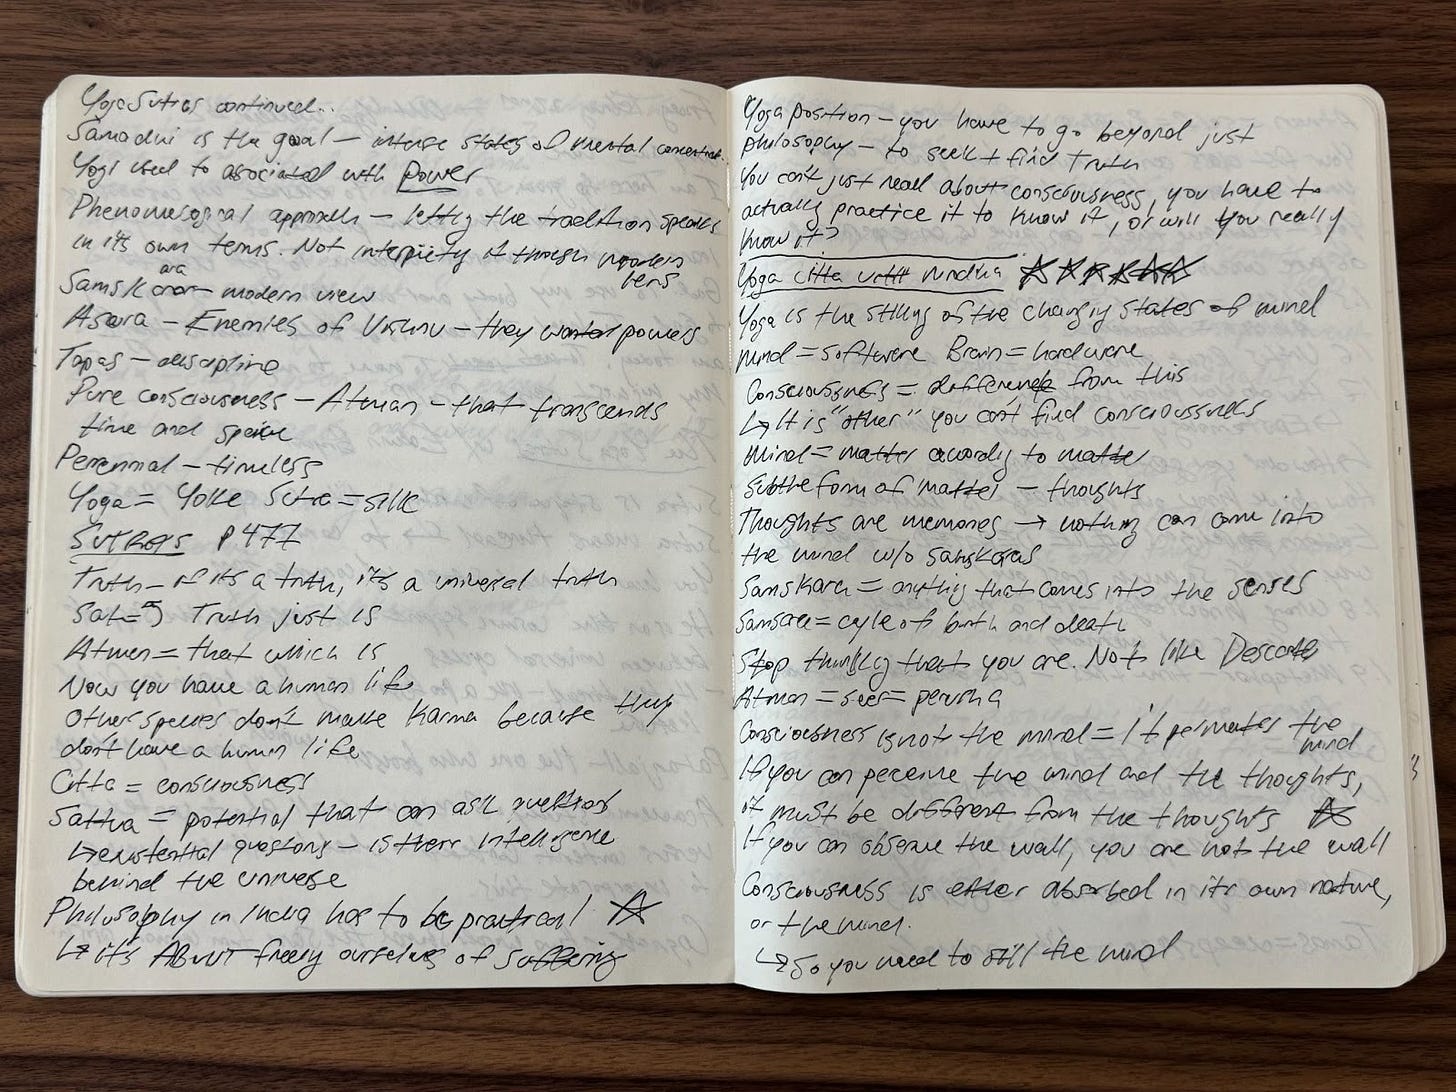 Yoga Sutras continued..
Samadhi is the goal – intense states of mental
Yogi used to associated with Power
Phenomological approach – letting the tradition speaks
in its own terms. Not interpreting it through modern
lens
Samskara – modern view
Asura – Enemies of Vishnu – they wanted powers
Tapas – discipline
Pure consciousness – Atman – that transcends
time and space
Perennial – timeless
Yoga = Yoke Sutra =
Sutras p 477
Truth – if it's a truth, it's a universal truth
Sat = Truth just is
Atman = that which is
Now you have a human life
Other species don't make Karma because they
don't have a human life
Citta = consciousness
Sattva = potential that can ask questions
↳ existential questions – is there intelligence
behind the universe
Philosophy in India has to be practical ☆
↳ it's ABOUT freeing ourselves of suffering
Yoga position – you have to go beyond just
philosophy – to seek + find Truth
You can't just read about consciousness, you have to
actually practice it to know it, or will you really
know it?
Yoga citta vritti nirodha ☆☆☆☆☆☆
Yoga is the stilling of the changing states of mind
Mind = software Brain = hardware
Consciousness = different from this
↳ It is "other" you can't find consciousness
Mind = matter according to
Subtle form of matter – thoughts
Thoughts are memories → nothing can come into
the mind w/o samskaras
Samskara = anything that comes into the senses
Samsara = cycle of birth and death
Stop thinking that you are. Not like Descartes
Atman = seer = purusha
Consciousness is not the mind = it permeates the
mind
If you can perceive the mind and the thoughts,
it must be different from the thoughts ☆
If you can observe the wall, you are not the wall
Consciousness is either absorbed in its own nature,
or the mind.
↳ So you need to still the mind